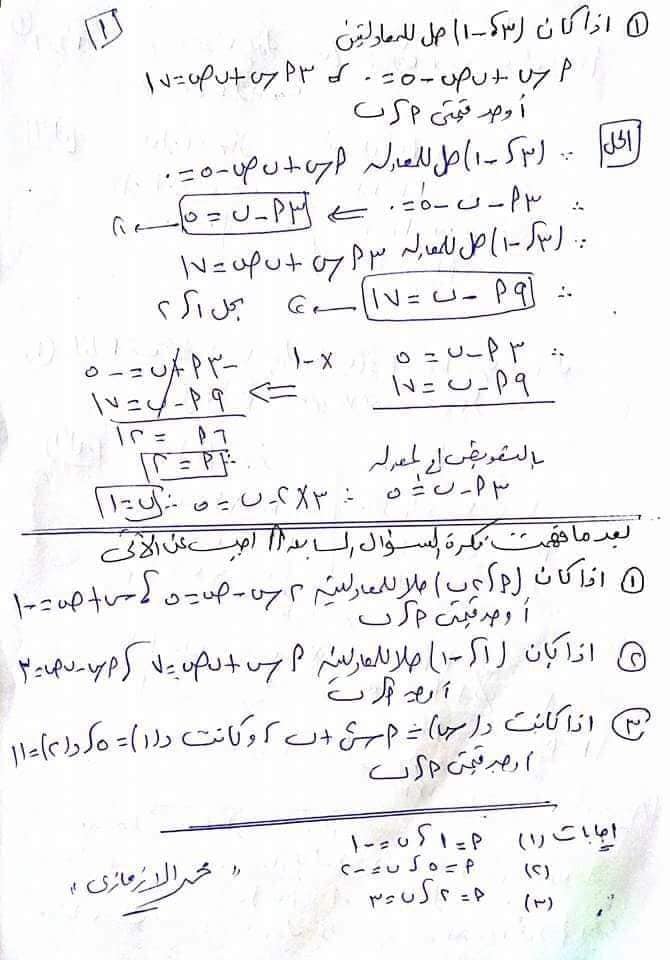 ١
① اذا كان (٣، -١) حل للمعادلتين
٢ س + ب ص - ٥ = ٠ ، ٣ ٢ س + ب ص = ١٧
أوجد قيمتى ٢ ، ب
الحل
∵ (٣، -١) حل للمعادلة ٢ س + ب ص - ٥ = ٠
∴ ٣ ٢ - ب - ٥ = ٠ ⇐ ٣ ٢ - ب = ٥ ← ١
∵ (٣، -١) حل للمعادلة ٣ ٢ س + ب ص = ١٧
∴ ٩ ٢ - ب = ١٧ ← ٢ بحل ١ ، ٢
∴ ٣ ٢ - ب = ٥ × -١ - ٣ ٢ + ب = - ٥
٩ ٢ - ب = ١٧ ⇐ ٩ ٢ - ب = ١٧
٦ ٢ = ١٢
∴ ٢ = ٢
بالتعويض في المعادلة
٣ ٢ - ب = ٥ ∴ ٣ × ٢ - ب = ٥ ∴ ب = ١
بعد ما فهمت فكرة السؤال السابق !! اجب عن الآتى
① اذا كان (٢، ٢ ب) حلا للمعادلتين ٢ س - ص = ٥ ، س + ص = -١
أوجد قيمتى ٢ ، ب
② اذا كان (١، -١) حلا للمعادلتين ٢ س + ب ص = ٧ ، ٢ س - ب ص = ٣
أوجد ٢ ، ب
③ اذا كانت د(س) = ٢ س² + ب ، وكانت د(١) = ٥ ، د(٢) = ١١
أوجد قيمتى ٢ ، ب
اجابات (١) ٢ = ١ ، ب = -١
(٢) ٢ = ٥ ، ب = -٢
(٣) ٢ = ٢ ، ب = ٣